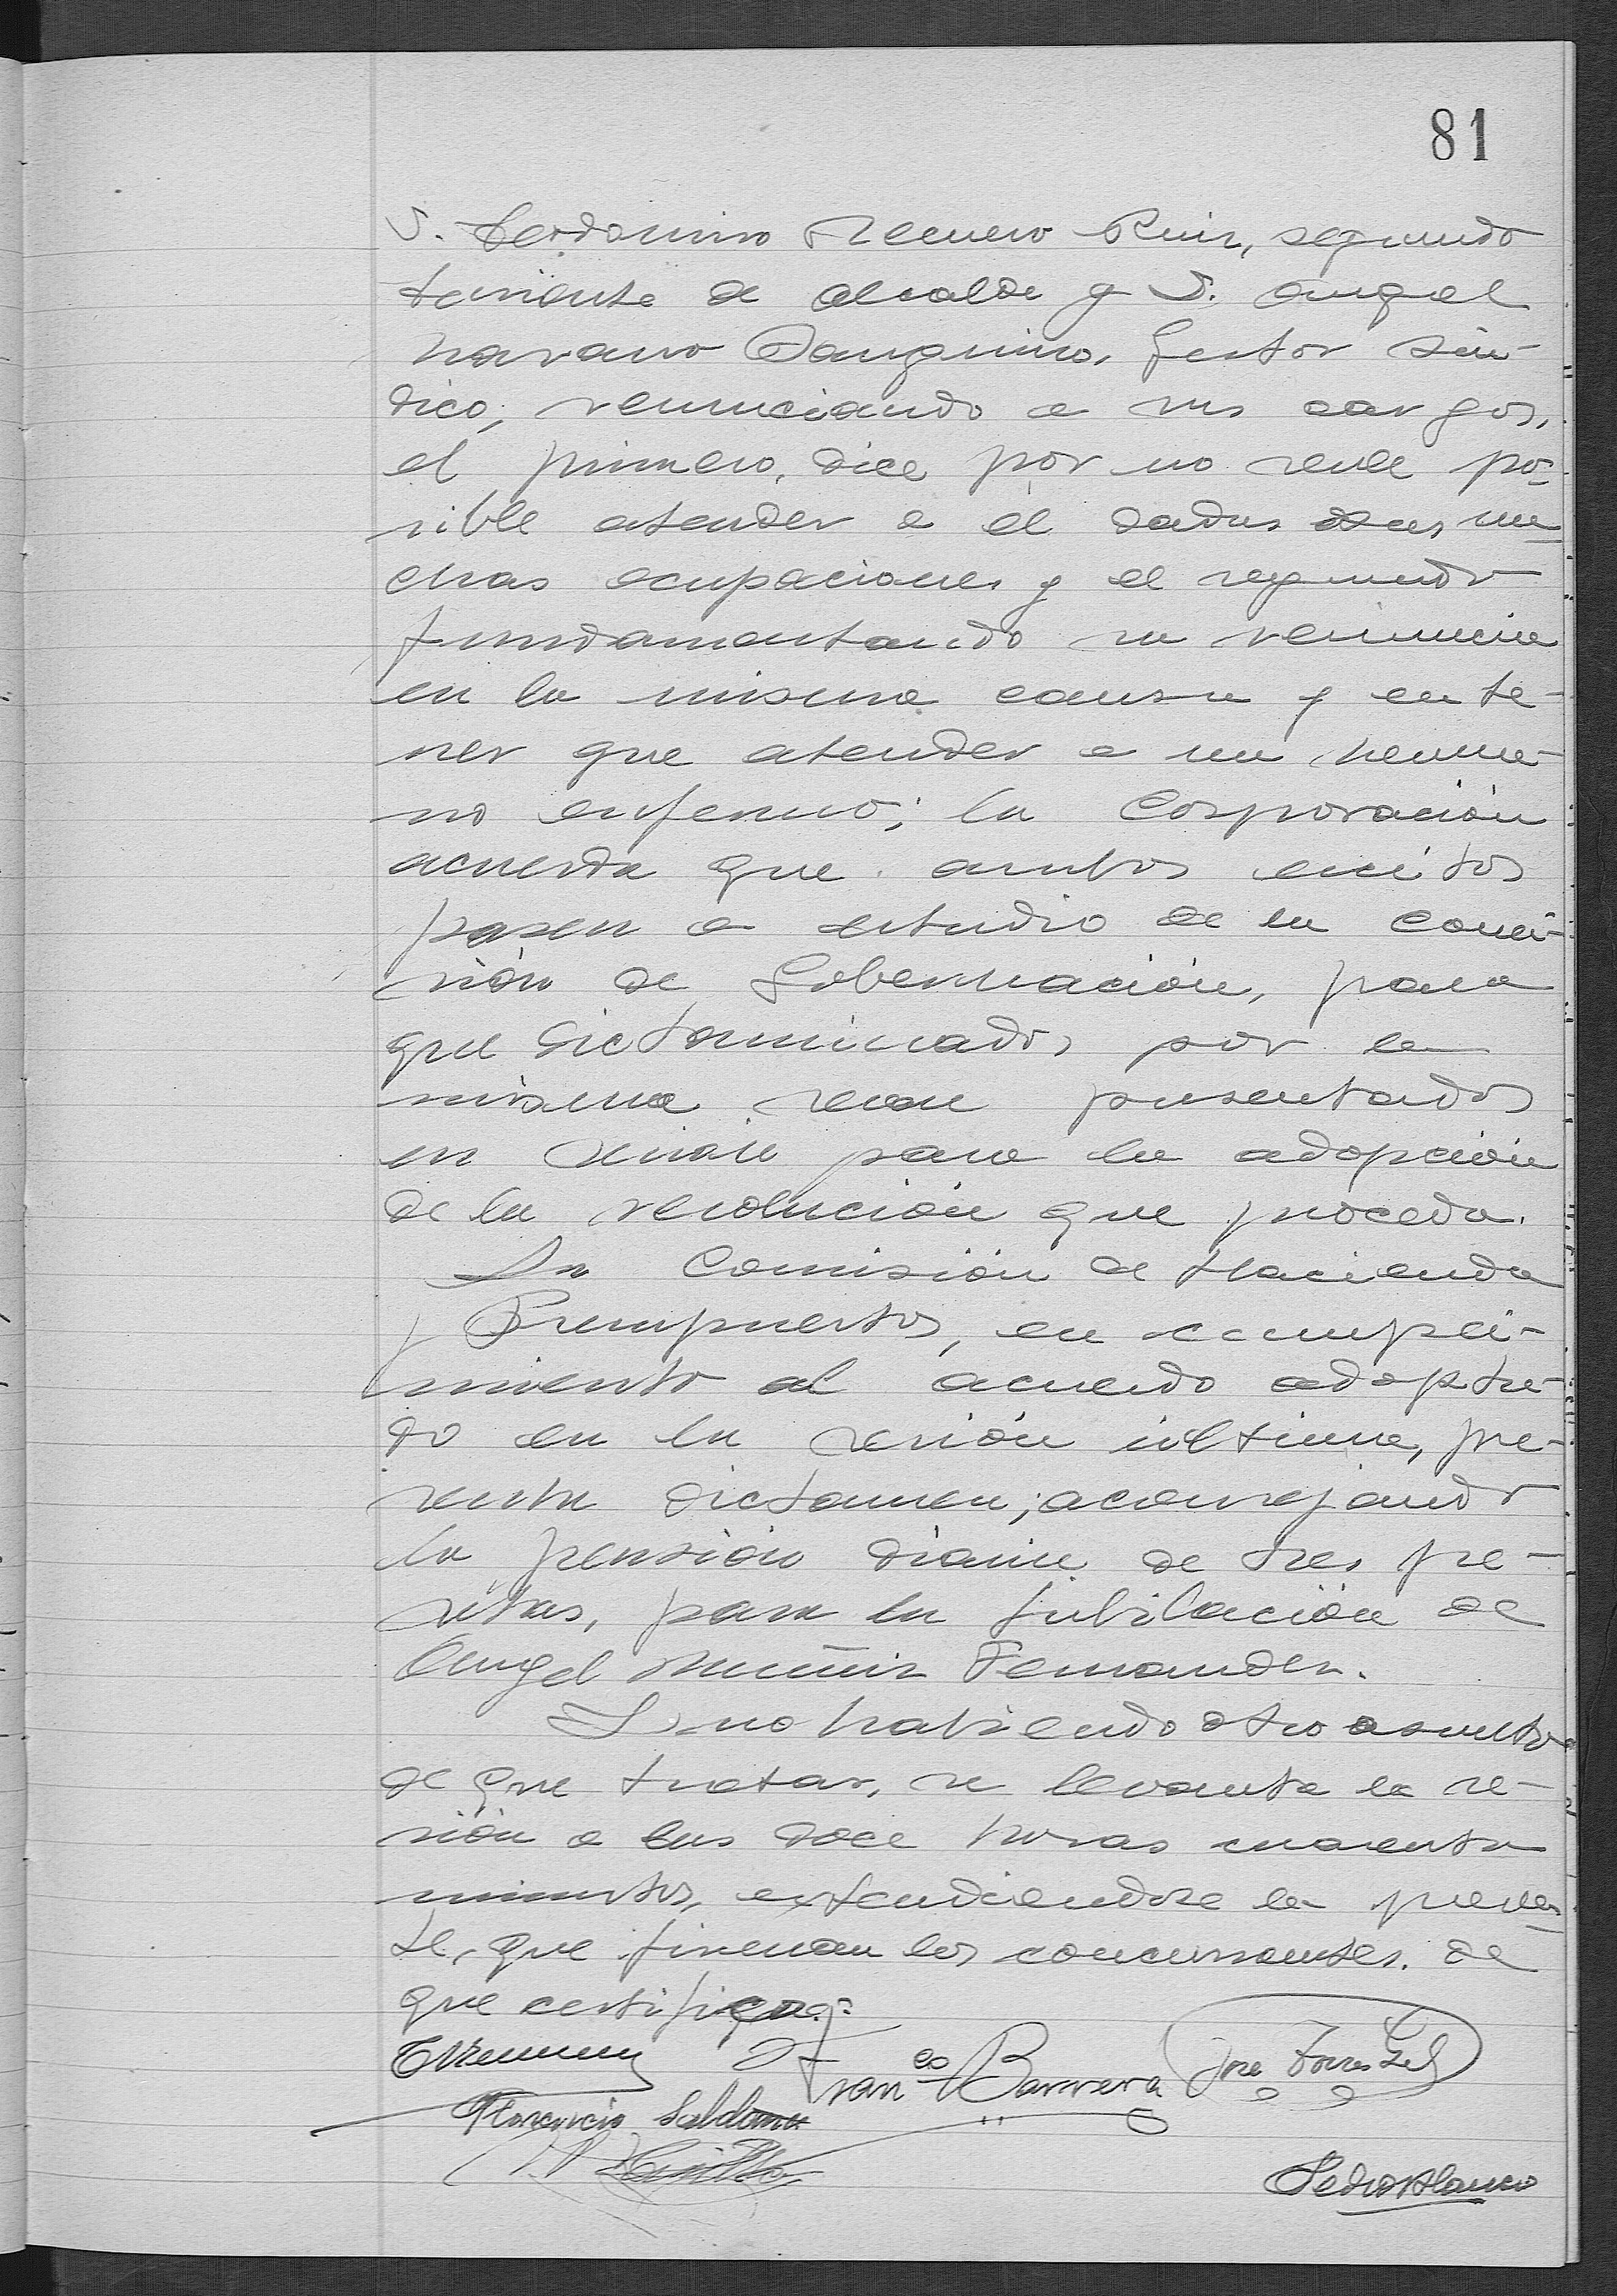 81
D. Gerdonimo Recuero Ruiz, segundo
teniente de alcalde y D. Angel
Navarro Sanguino, Gestor Sín-
dico, renunciando a sus cargos,
el primero, dice por no serle po-
sible atender a él dadas sus mu-
chas ocupaciones y el segundo
fundamentando su renuncia
en la misma causa y en te-
ner que atender a un herma-
no enfermo; la Corporación
acuerda que ambos escritos
pasen a estudio de la Comi-
sión de Gobernación, para
que dictaminados por la
misma sean presentados
en sesión para la adopción
de la resolución que proceda.
La Comisión de Hacienda
y Presupuestos, en cumpli-
miento al acuerdo adopta-
do en la sesión última, pre-
senta dictamen; aconsejando
la pensión diaria de tres pe-
setas, para la jubilación de
Angel Muñiz Fernandez.
Y no habiendo otro asunto
de que tratar, se levanta la se-
sión a las doce horas cuarenta
minutos, extendiendose la presen-
te, que firman los concursantes. de
que certifico.
Franco Barrera Jose Torres Gil
Florencio Saldaña
Pedro Blanco